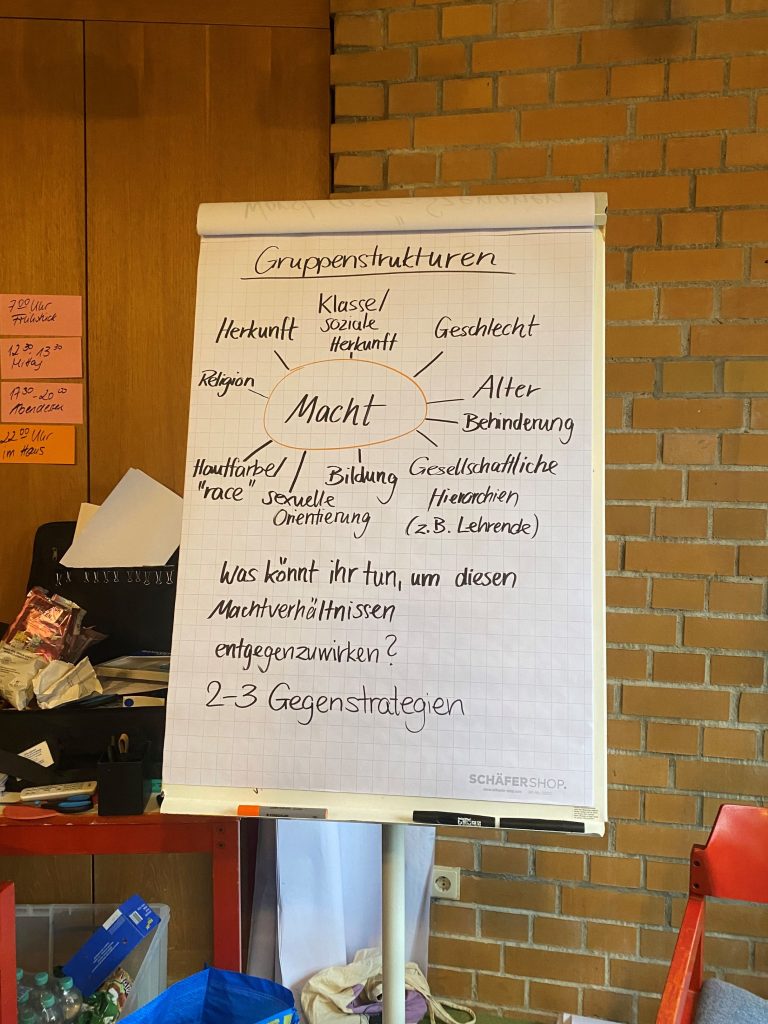 Gruppenstrukturen
Klasse/
soziale
Herkunft
Herkunft
Geschlecht
Religion
Macht
Alter
Behinderung
Hautfarbe/
"race"
sexuelle
Orientierung
Bildung
Gesellschaftliche
Hierarchien
(z.B. Lehrende)
Was könnt ihr tun, um diesen
Machtverhältnissen
entgegenzuwirken?
2-3 Gegenstrategien
SCHÄFERSHOP.
7 00 Uhr
Frühstück
12 30 - 13 30
Mittag
- 20 00
Abendessen
22.00 Uhr
im Haus